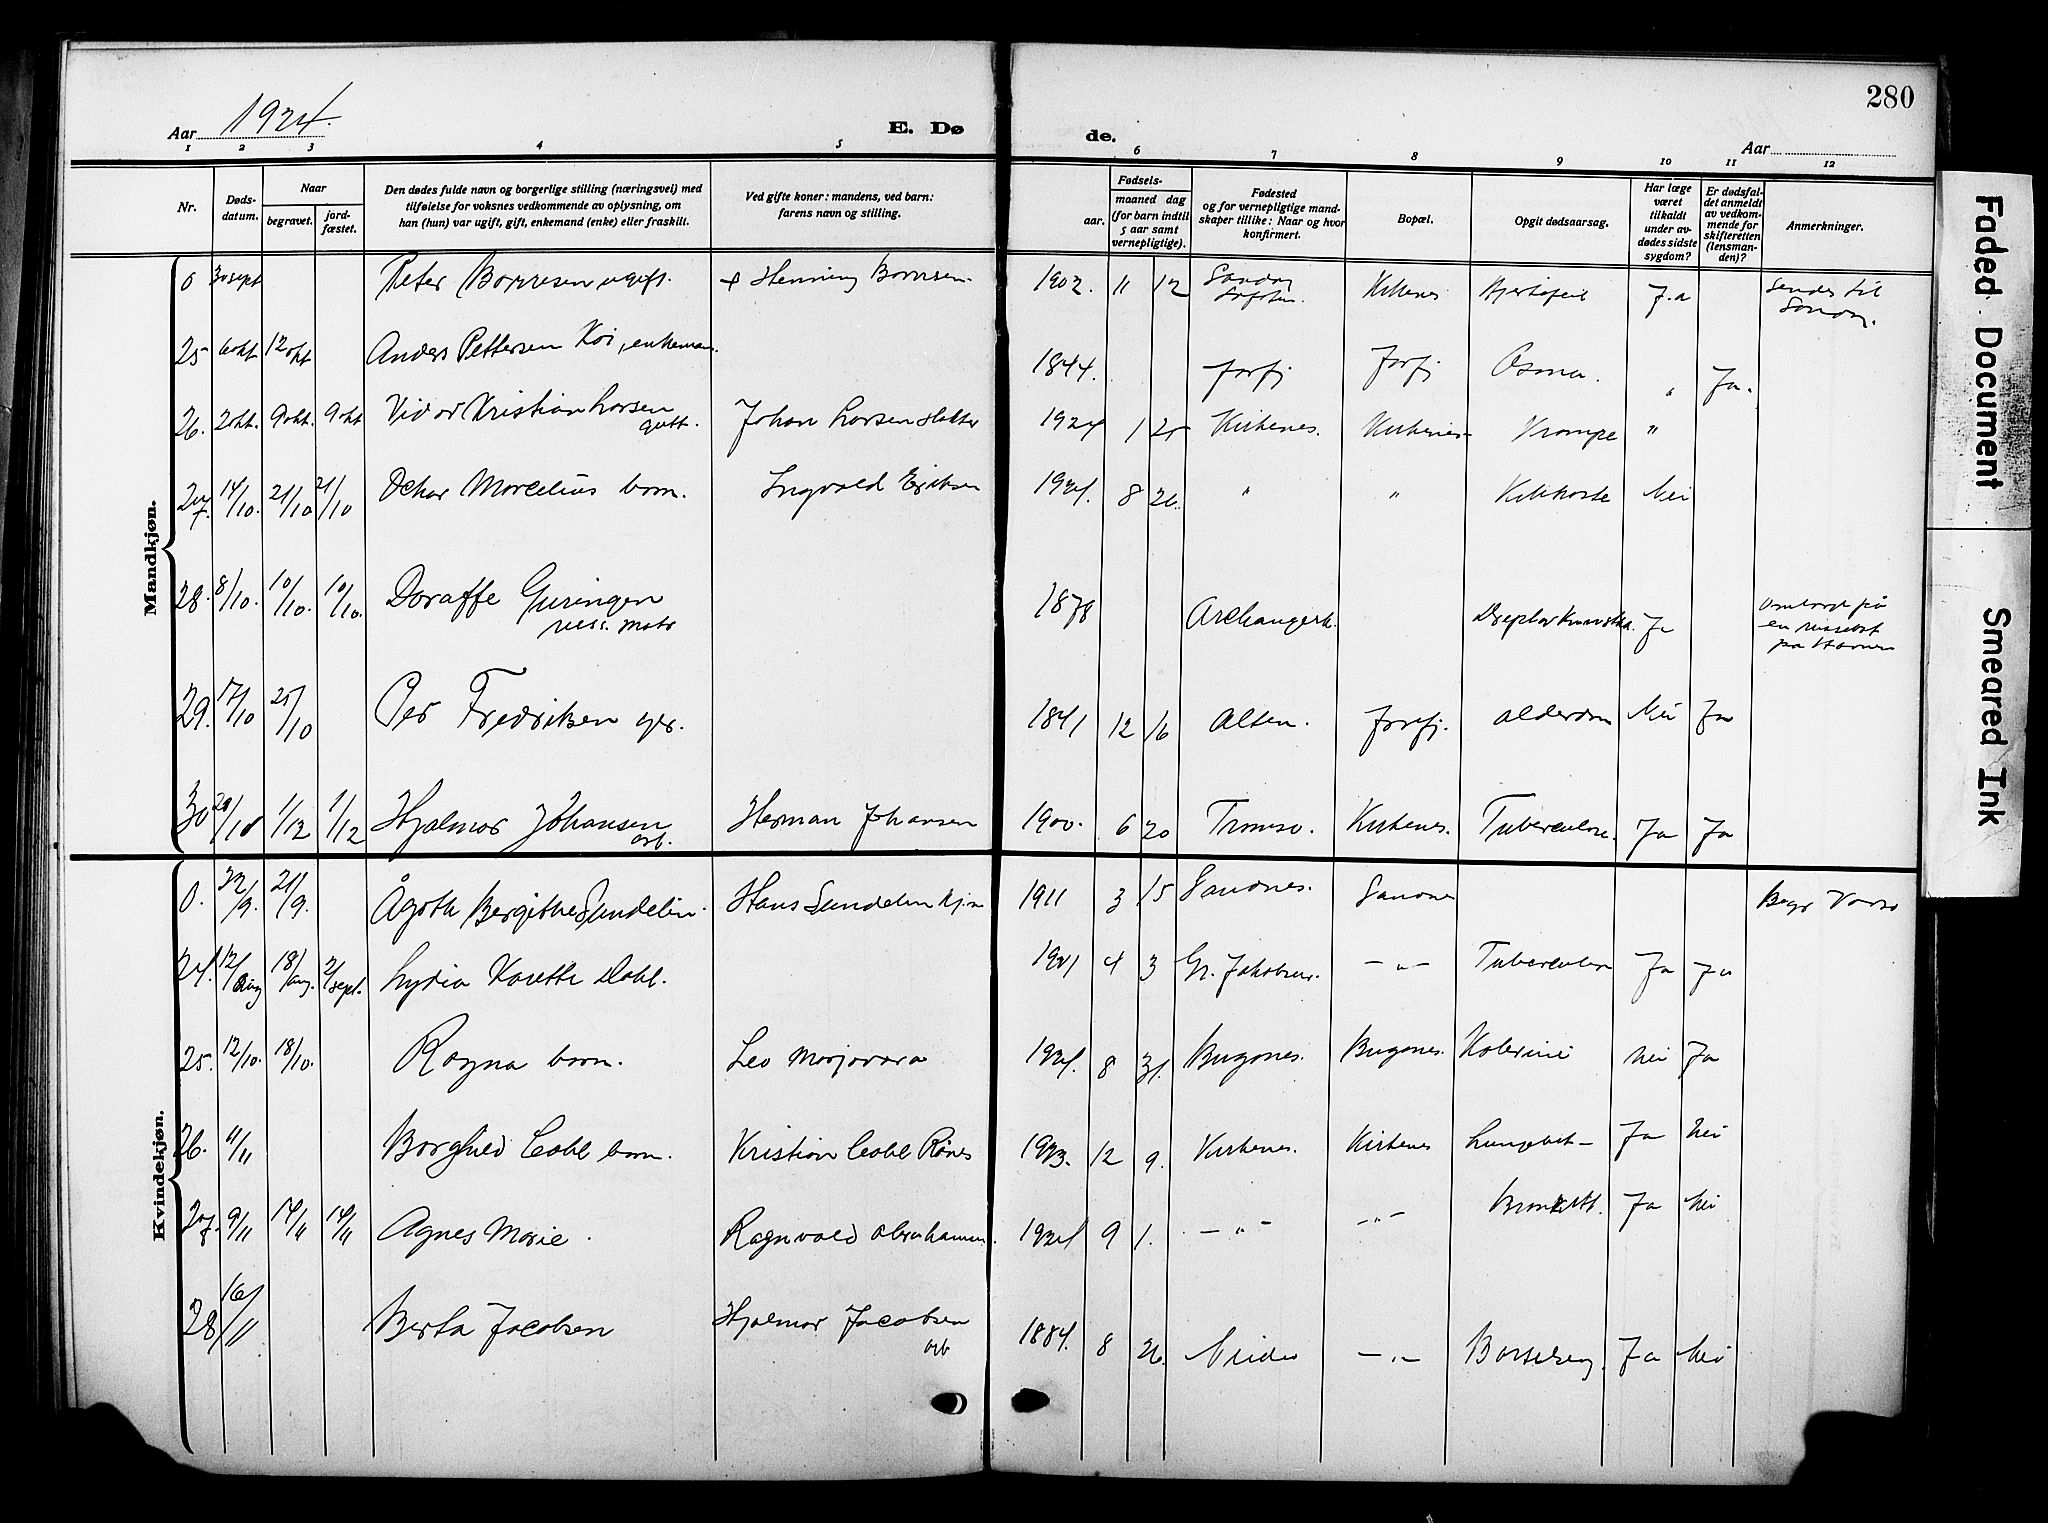 280
Aar 1924.
E. Dø
de.
Aar
1 2 3 4 5 6 7 8 9 10 11 12
Nr.
Døds-
datum.
Naar
begravet.
jord-
fæstet.
Den dødes fulde navn og borgerlige stilling (næringsvei) med
tilføielse for voksnes vedkommende av oplysning, om
han (hun) var ugift, gift, enkemand (enke) eller fraskilt.
Ved gifte koner: mandens, ved barn:
farens navn og stilling.
Fødsels-
aar.
maaned dag
(for barn indtil
5 aar samt
vernepligtige).
Fødested
og for vernepligtige mand-
skaper tillike: Naar og hvor
konfirmert.
Bopæl.
Opgit dødsaarsag.
Har læge
været
tilkaldt
under av-
dødes sidste
sygdom?
Er dødsfal-
det anmeldt
av vedkom-
mende for
skifteretten
(lensman-
den)?
Anmerkninger.
Mandkjøn.
0 30 sept Peter Borresen ugift. + Henning 1902 11 12 Sandn Kirkenes Hjertefeil Ja Sendes til
25 6 okt 12 okt Anders Pettersen Koi, enkeman. 1844. Jarfj Jarfj Osma. " Ja.
26. 2 okt. 9 okt. 9 okt Vidar Kristian Larsen Johan Larsen 1924 1 25 Kirkenes. Kirkenes Krampe "
gutt.
27. 14/10. 21/10 21/10 Oskar Marcelius barn. Ingvald Eriksen 1924. 8 26. " " Kikhoste Nei
28. 8/10. 10/10. 10/10. Doraffe Guringen 1878 Archangersk. Ja Ombord på
russ. matr en russebåt
på Havnen
29. 17/10 25/10 Per Fredriksen 1841 12 16 Alten. Jarfj. alderdom Nei Ja
30 1/12 1/12 Hjalmar Johansen Herman Johansen 1900. 6 20 Tromsø. Kirkenes. Tuberculose. Ja Ja
arb.
Kvindekjøn.
0. 21/9. Ågoth Bergithe Sundelin. Hans Sundelin 1911 3 15 Sandnes. Sandnes Begr Vardø
24. 12/Aug 18/aug. 2/sept. Lydia Karette Dahl. 1921 4 3 Gr. Jakobsel. — " — Tuberculose Ja Ja
25. 12/10. 18/10. Ragna barn. Leo Marjavara 1924. 8 31. Bugønes. Bugønes. Kolerine Nei Ja
26. 4/11 Borghild Dahl barn. Kristian Dahl 1923. 12 9. Kirkenes. Kirkenes Lungebet — Ja Nei
27. 9/11 14/11 14/11 Agnes Marie. Ragnvald Abrahamsen. 1924 9 1. — " — — " — Bronkitt. Ja Nei
28 16/11 Berta Jacobsen Hjalmar Jacobsen 1884. 8 26. Neiden — " — Barselseng. Ja Nei
arb
Faded Document
Smeared Ink